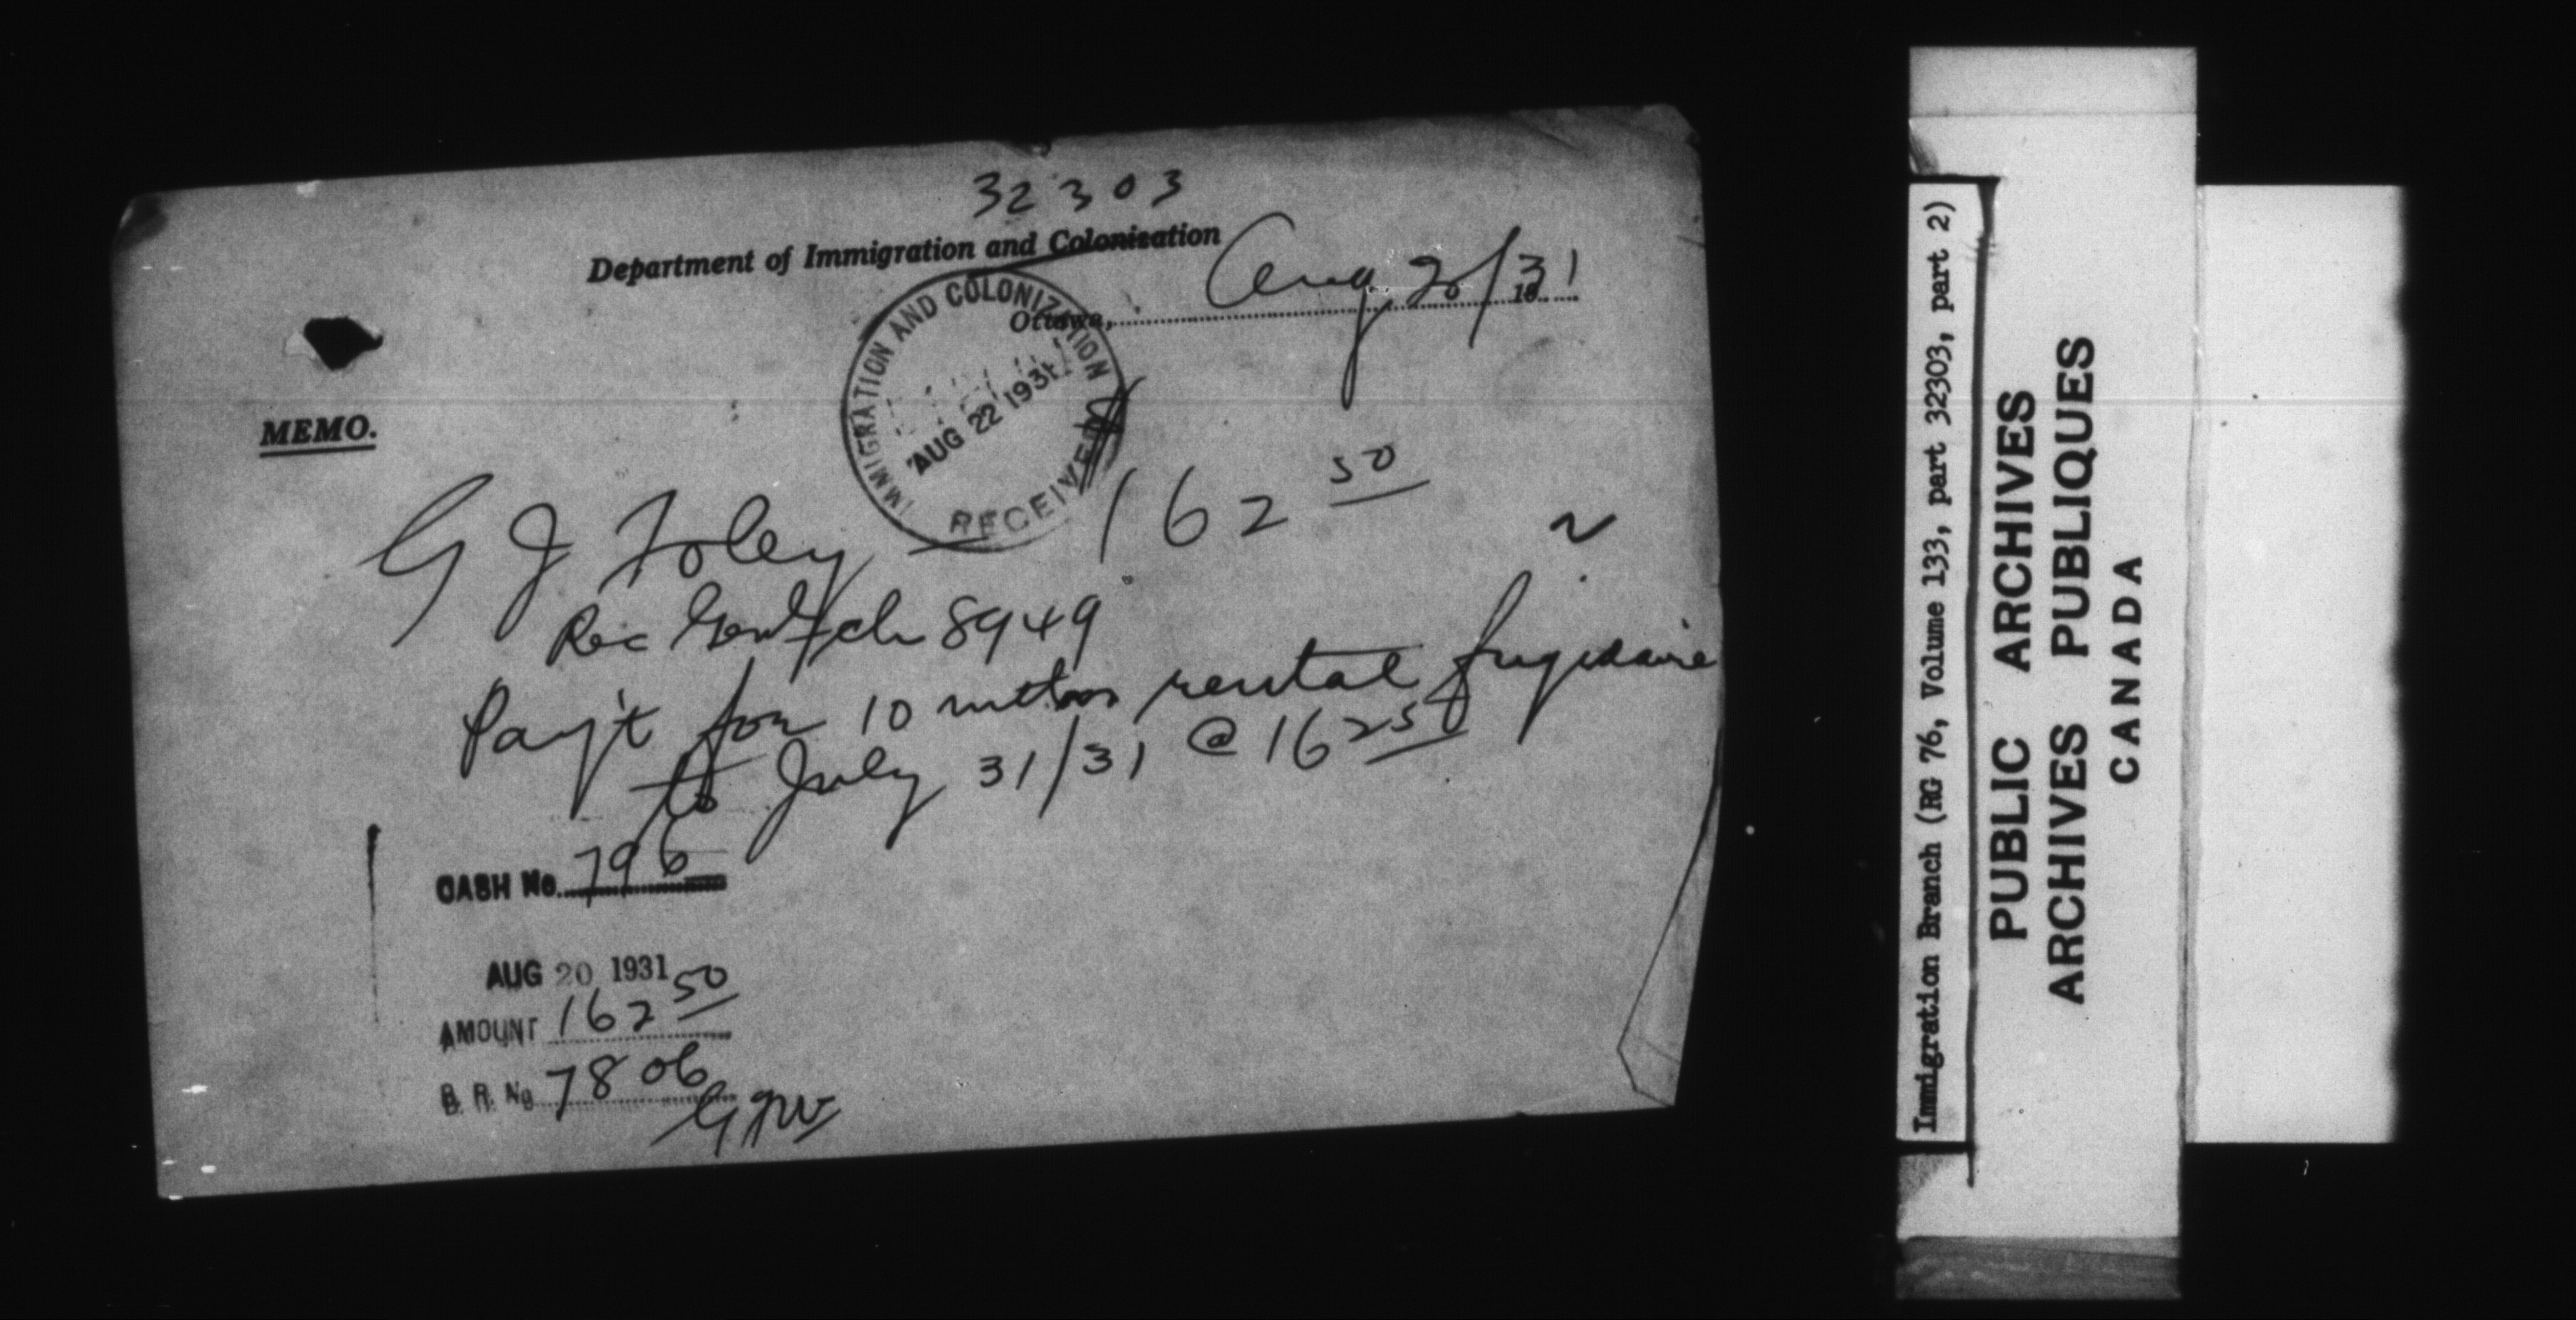 32303
Department of Immigration and Colonization
Ottawa, Aug 20/31 19
IMMIGRATION AND COLONIZATION
AUG 22 1931
RECEIVED
MEMO.
G J Foley — 162 50
Rec Genl ch 8949
Pay't for 10 mths rental frigidaire
to July 31/31 @ 16 25
CASH No. 796
AUG 20 1931
AMOUNT 162 50
B. R. No 7806
Immigration Branch (RG 76, Volume 133, part 32303, part 2)
PUBLIC ARCHIVES
ARCHIVES PUBLIQUES
CANADA